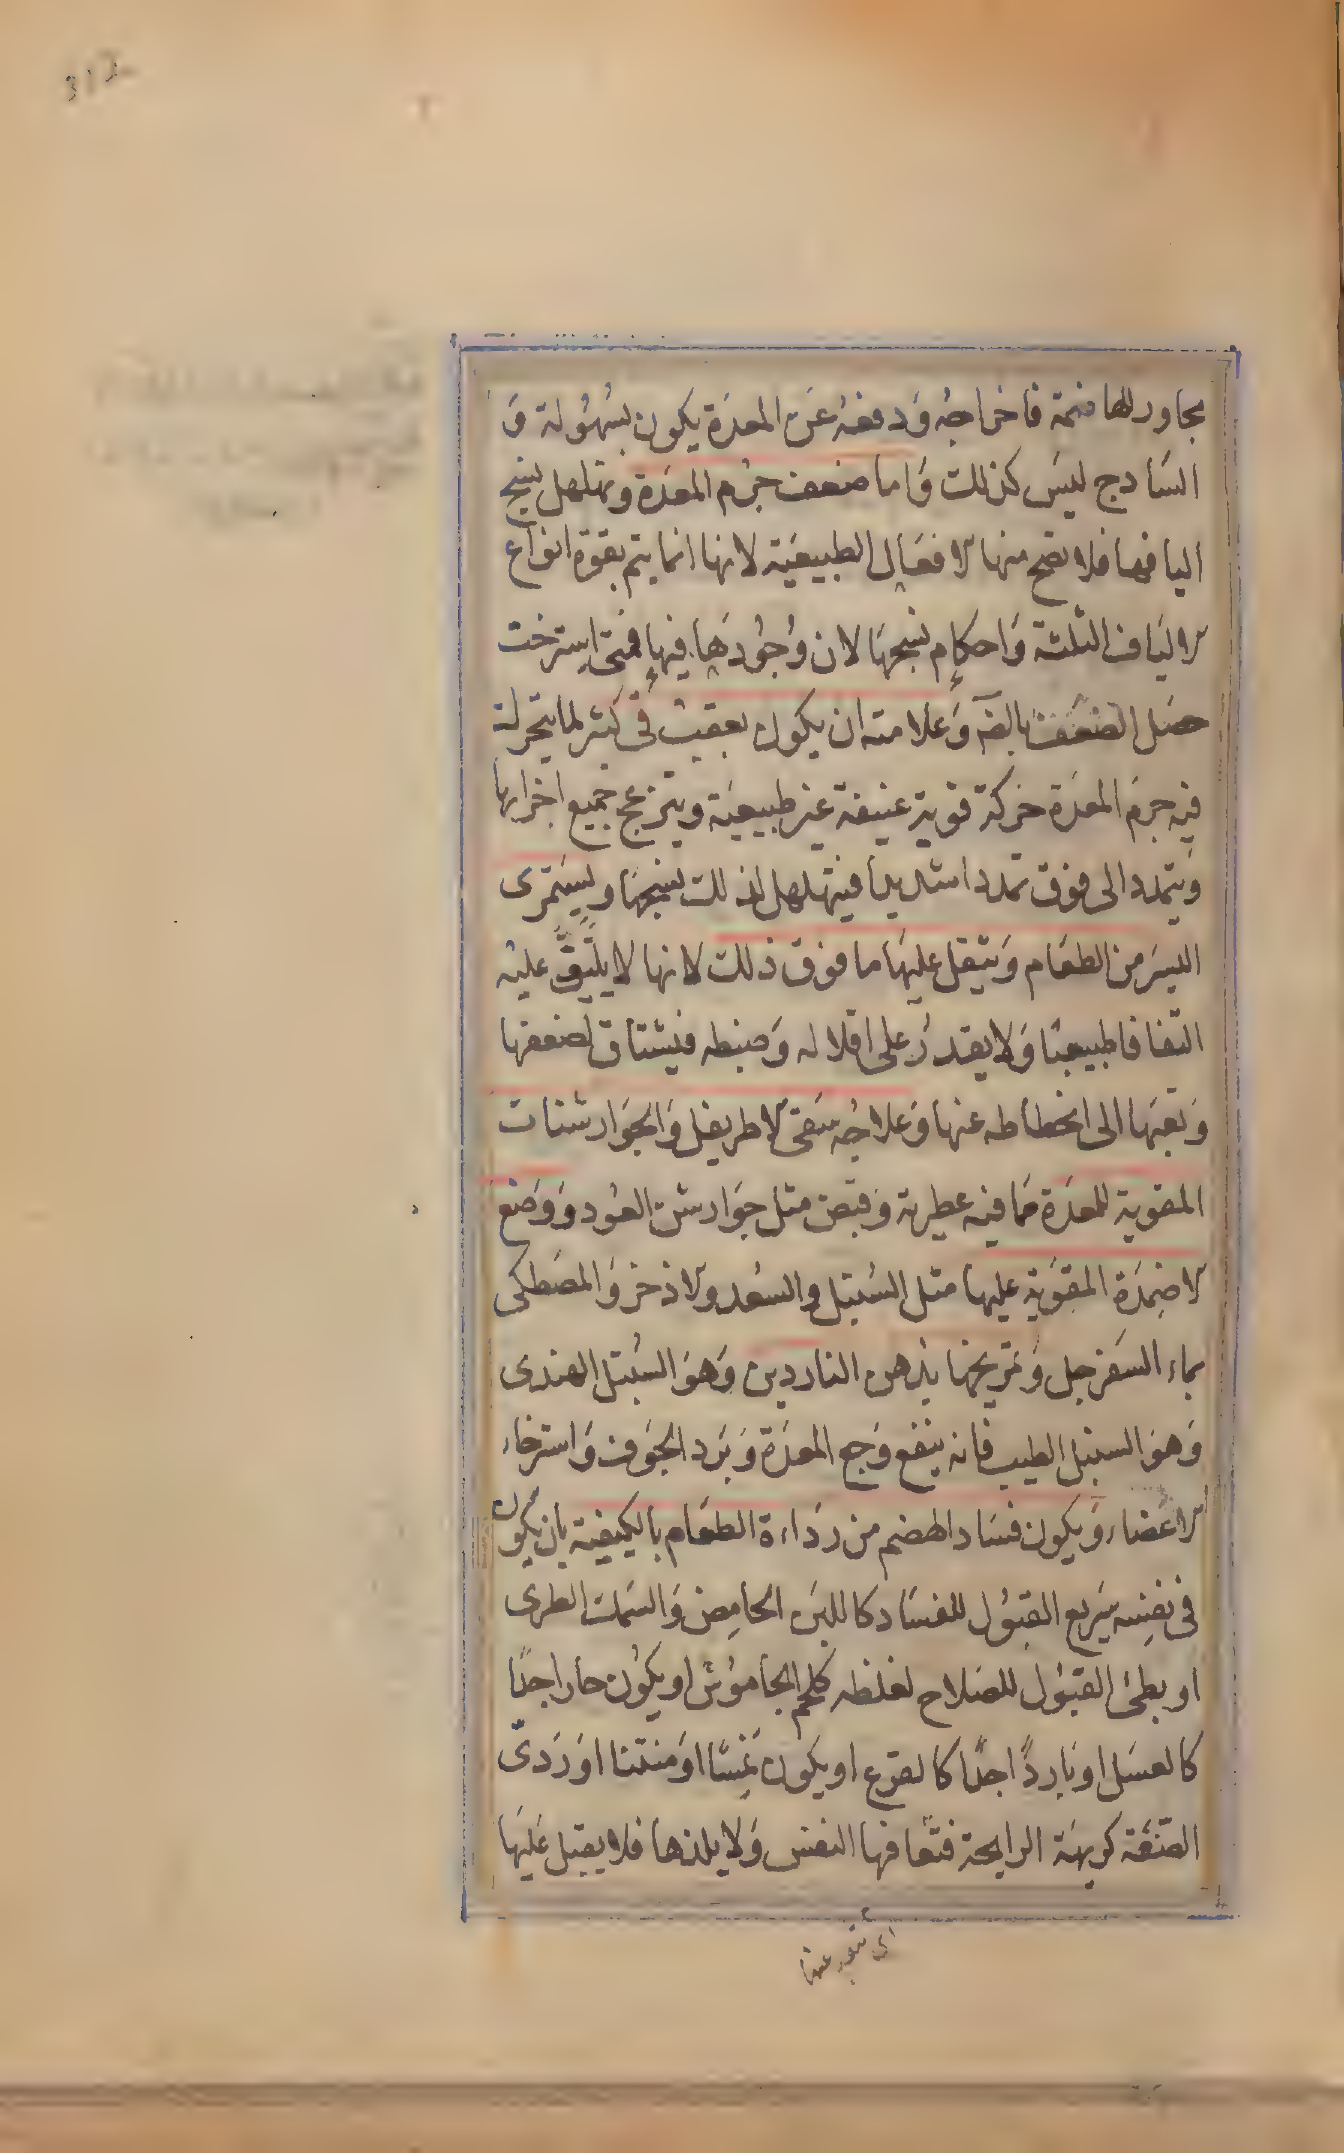 312
مجاور لها فمه فاخراجه وَدفعهُ عَن المعدَة يكون بسُهُولة وَ
السَّادج ليسَ كذلك وَاما ضعف جرم المعدَة وتهلهل نسج
اليافها فلا تصح منها الافعَال الطبيعيَة لانها انما يتم بقوة انواع
الاليَاف الثلثة وَاحكام نسجهَا لان وُجُودهَا فيها فمتى استرخت
حصَل الضعف بالضّر وَعلامته ان يكون بعقب قى كثير لما يتحرك
فيه جرمَ المعدَة حركة قوية عنيفة غير طبيعيَة وينزعج جميع اجزايها
وَيتمدد الى فوق تمددا شديدا فيتهلهل لذلك نسجهَا ويستمرى
اليسيرَ من الطعَام وَيثقل عليهَا ما فوق ذلك لانها لا يلتف عليْه
التفافا طبيعيًا وَلا يقدرُ على اقلاله وَضبطه فيشتاق لضعفها
وَتعبَها الى انحطاطه عنها وَعلاجُه سَقى الاطريفل وَالجوَارشنات
المقوية للمعدَة مما فيه عطرية وَقبض مثل جوَارشن العُود وَوَضع
الاضِمَدَة المقوَية عليها مثل السُنبل والسعد والاذخر وَالمصَطكى
بماء السَفرجل وَتمريخها بدهن الناردين وَهوَ السُنبل الهندى
وَهوَ السنبل الطيب فانه ينفع وَجع المعدَة وَبَرد الجوَف وَاسترخاء
الاعضاء وَيكون فسَاد الهضم من رَدَاءة الطعَام بالكيفية بان يكون
فى نفسِه سَريع القبُول للفسَاد كاللبن الحامِض وَالسَمك الطرى
او بطئ القبُول للصَلاح لغلظه كلحم الجامُوش او يكُون حارا جدًا
كالعسَل او بَاردًا جدًا كالقرع او يكون نَجِسًا اوَ منتنا اوَ رَدىّ
الصَنعَة كريهَة الرايحة فتعافها النفس وَلا يلذها فلا يقبل عَليهَا
اى تنفر عنها